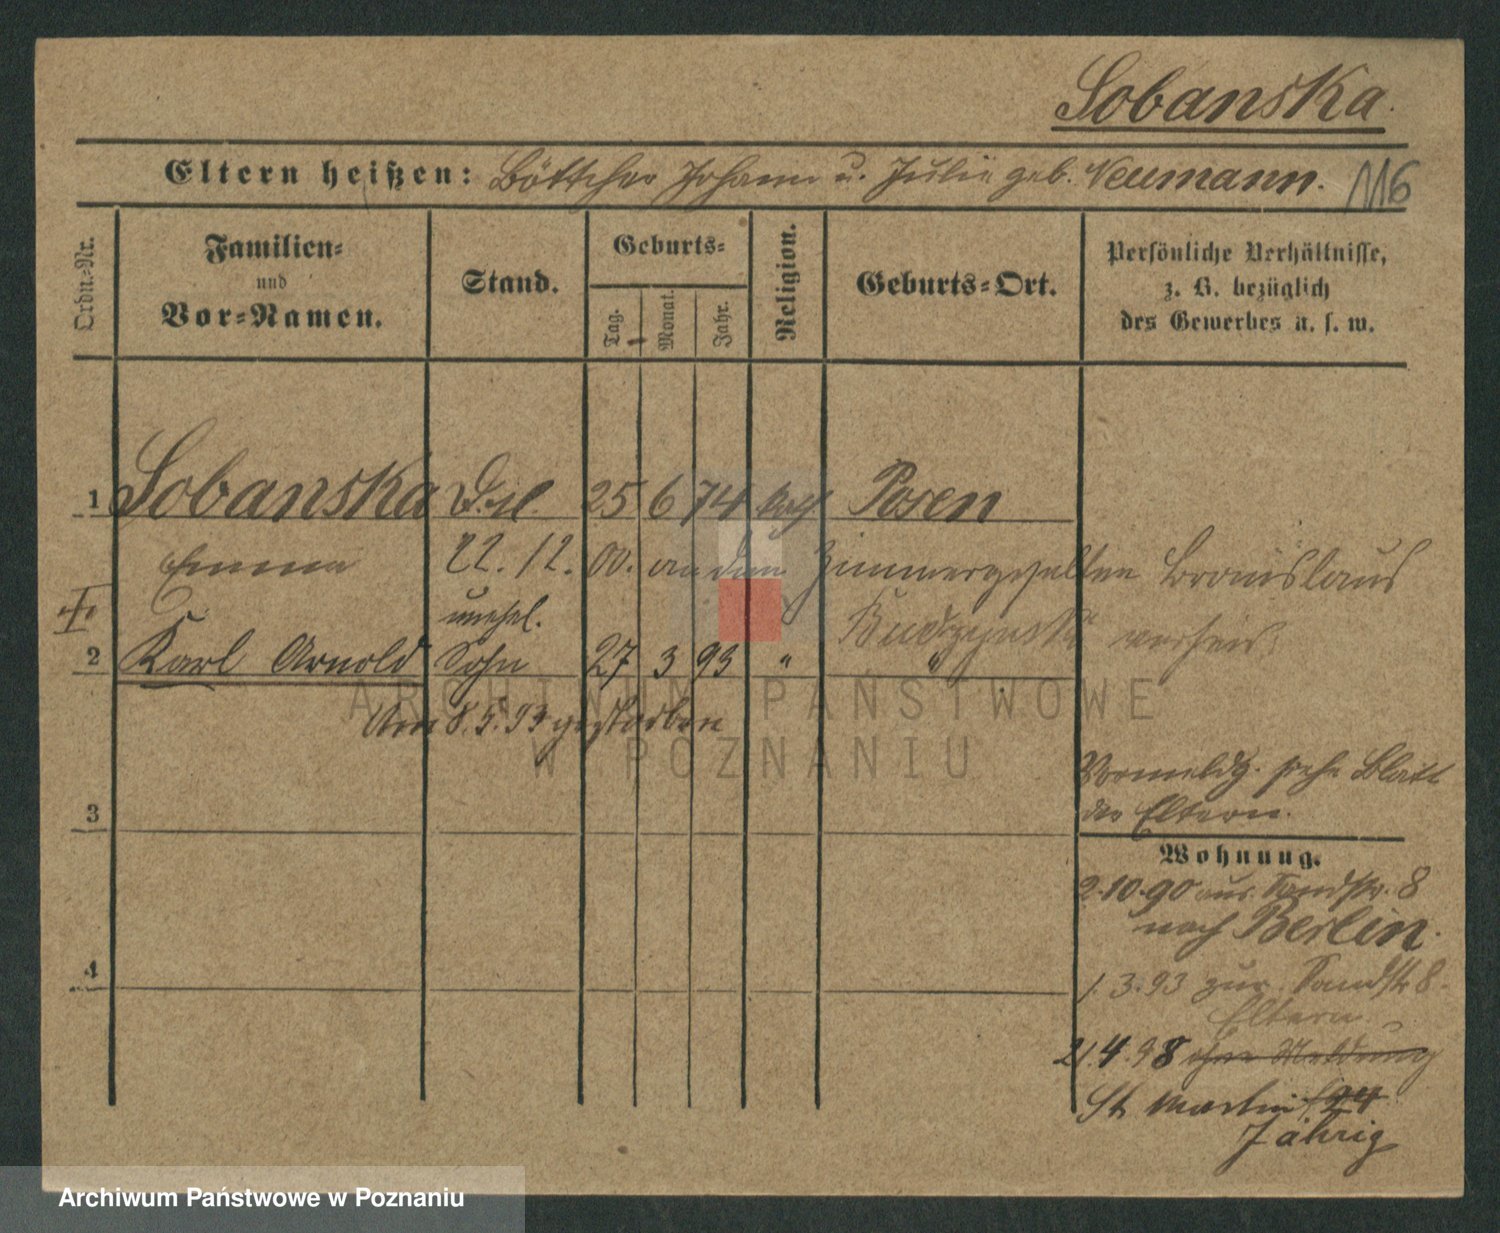 Sobanska.
Eltern heißen: Böttcher Johann u. Julie geb. Neumann. 116
Ordn.=Nr.
Familien=
und
Vor=Namen.
Stand.
Geburts=
Tag.
Monat.
Jahr.
Religion.
Geburts=Ort.
Persönliche Verhältnisse,
z. B. bezüglich
des Gewerbes u. s. w.
1 Sobanska 25 6 74 kath Posen
Emma 22. 12. 00. an den Zimmergesellen Bronislaus
unehel. verheir.
2 Karl Arnold Sohn 27 3 93 " "
Am 8. 5. 93 gestorben
Vormeldg. siehe Blatt
der Eltern.
3
Wohnung.
2.10.90 aus Sandstr. 8
nach Berlin.
4
1.3.93 zur. Sandstr 8.
Eltern
21.4.98 ohne Meldung
St Martin 24
Jährig
ARCHIWUM PAŃSTWOWE
W POZNANIU
Archiwum Państwowe w Poznaniu